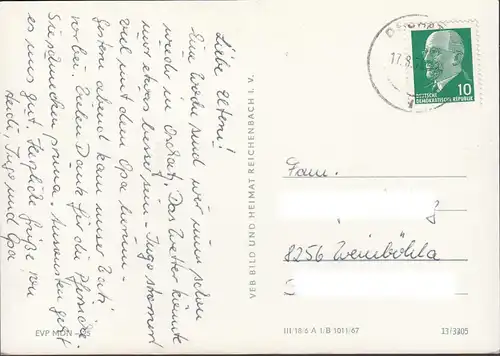 Liebe Eltern!
Eine Woche sind wir nun schon
wieder in Das Wetter könnte
nur etwas besser sein. Ingo stromert
viel mit dem Opa herum.
Gestern abend kam unser Uti
vorbei. Vielen Dank für die Pfirsiche.
Sie schmecken prima. Ansonsten geht
es uns gut. Herzliche Grüße von
Heidi, Ingo und Opa
EVP MDN
VEB BILD UND HEIMAT REICHENBACH I. V.
17.8.
10
DEUTSCHE
DEMOKRATISCHE REPUBLIK
Fam.
8256 Weinböhla
III/18/6 A 1/B 1011/67
13/3205